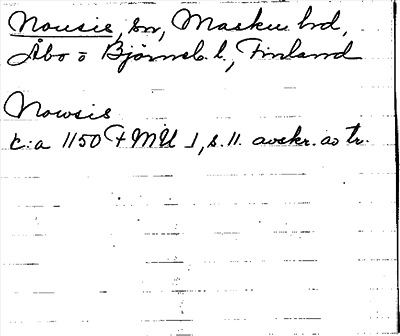 Nousis, sn, Masku hd,
Åbo o Björneb. l., Finland
Nowsis
c:a 1150 FMU 1, s. 11. avskr. av tr.